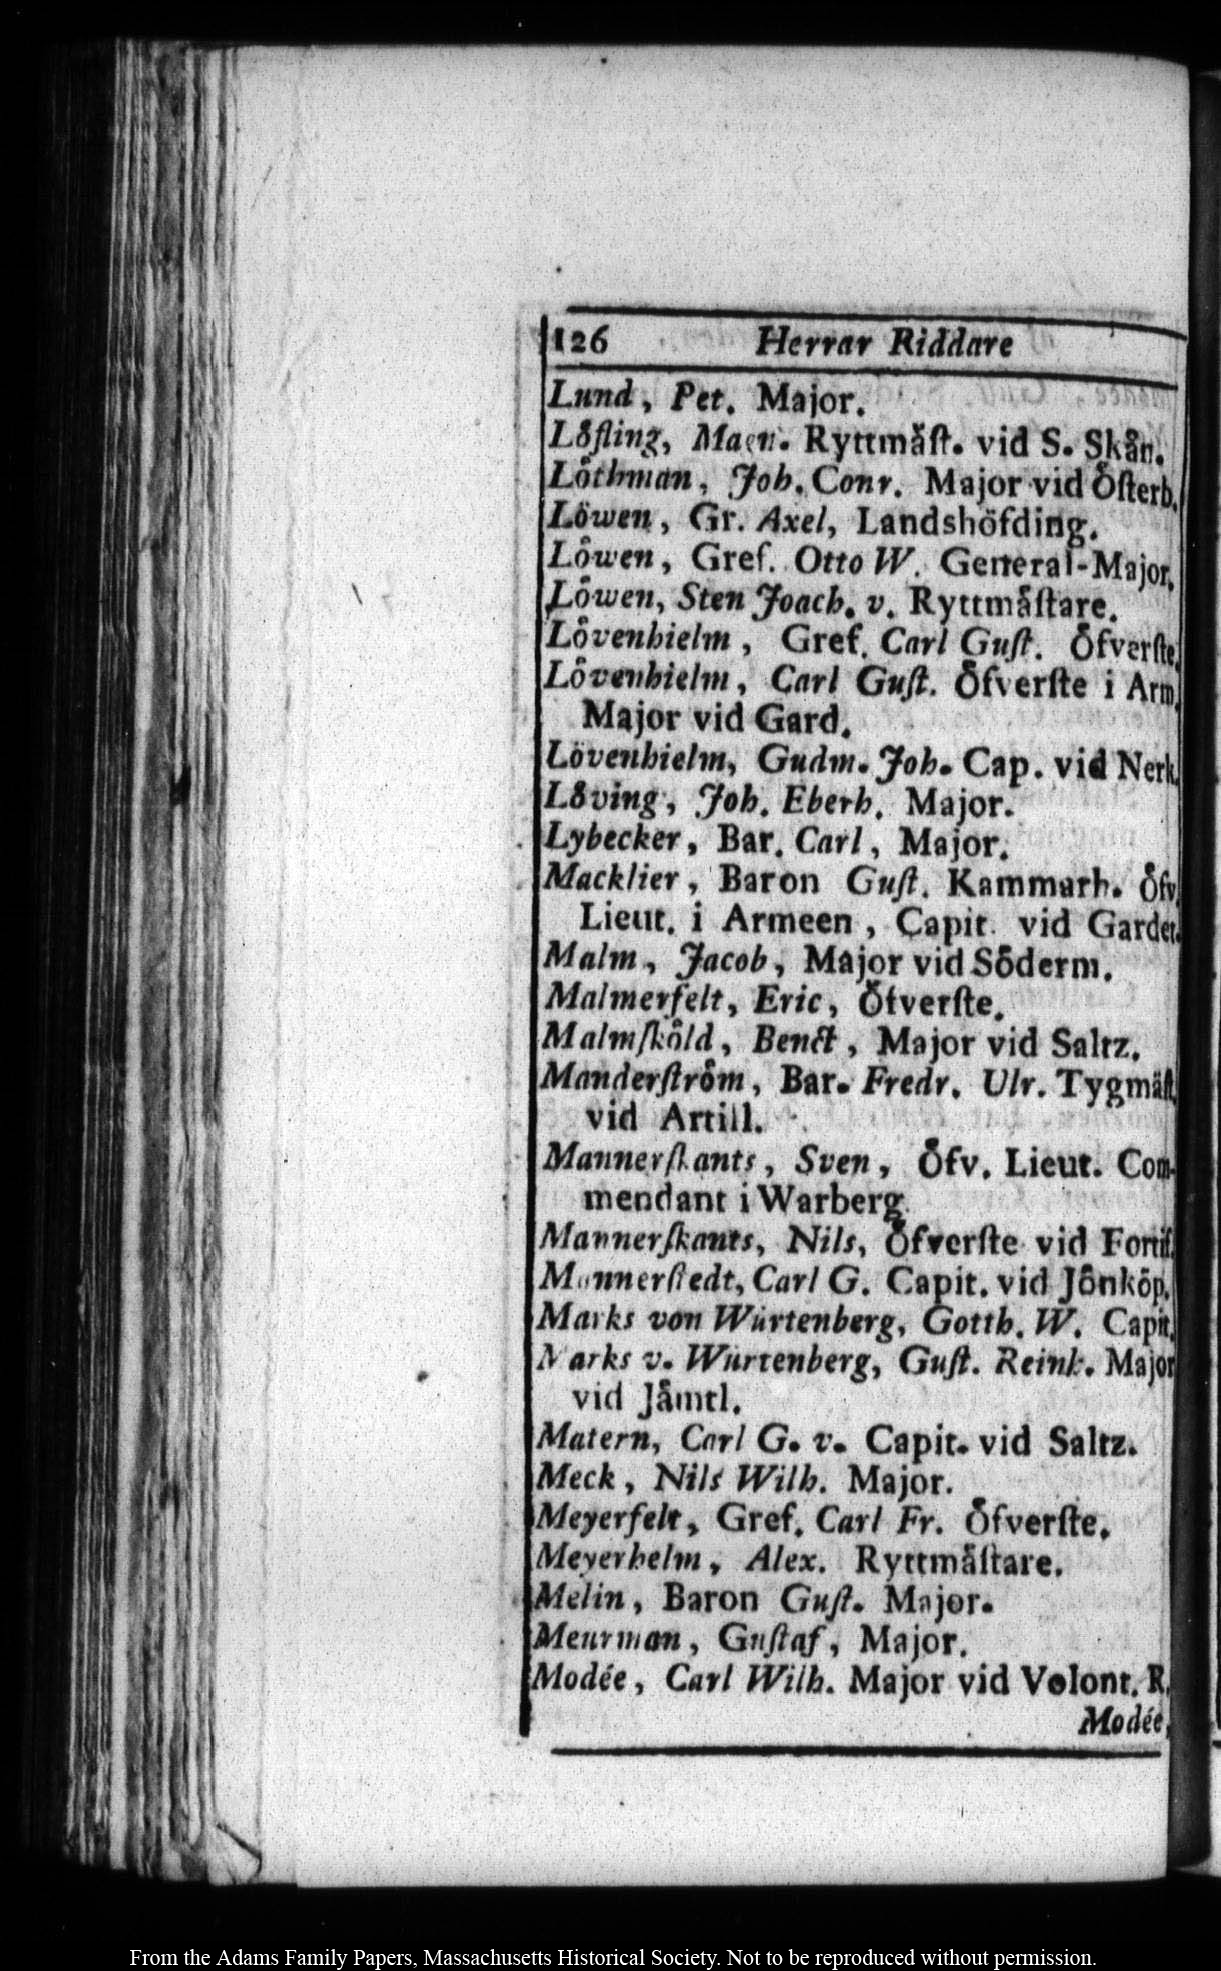 126 Herrar Riddare
Lund, Pet. Major.
Löfling, Magn. Ryttmäſt. vid S. Skån.
Löthman, Joh. Conr. Major vid Öſterb.
Löwen, Gr. Axel, Landshöfding.
Löwen, Gref. Otto W. General-Major.
Löwen, Sten Joach. v. Ryttmäſtare.
Lövenhielm, Gref. Carl Guſt. Öfverſte.
Lövenhielm, Carl Guſt. Öfverſte i Arm.
Major vid Gard.
Lövenhielm, Gudm. Joh. Cap. vid Nerk.
Löving, Joh. Eberh. Major.
Lybecker, Bar. Carl, Major.
Macklier, Baron Guſt. Kammarh. Öfv.
Lieut. i Armeen, Capit. vid Gardet.
Malm, Jacob, Major vid Söderm.
Malmerfelt, Eric, Öfverſte.
Malmſköld, Benct, Major vid Saltz.
Manderſtröm, Bar. Fredr. Ulr. Tygmäſt.
vid Artill.
Mannerſkants, Sven, Öfv. Lieut. Com-
mendant i Warberg.
Mannerſkants, Nils, Öfverſte vid Fortif.
Mannerſtedt, Carl G. Capit. vid Jönköp.
Marks von Würtenberg, Gotth. W. Capit.
Marks v. Würtenberg, Guſt. Reink. Major
vid Jämtl.
Matern, Carl G. v. Capit. vid Saltz.
Meck, Nils Wilh. Major.
Meyerfelt, Gref. Carl Fr. Öfverſte.
Meyerhelm, Alex. Ryttmäſtare.
Melin, Baron Guſt. Major.
Meurman, Guſtaf, Major.
Modée, Carl Wilh. Major vid Volont. R.
Modée,
From the Adams Family Papers, Massachusetts Historical Society. Not to be reproduced without permission.